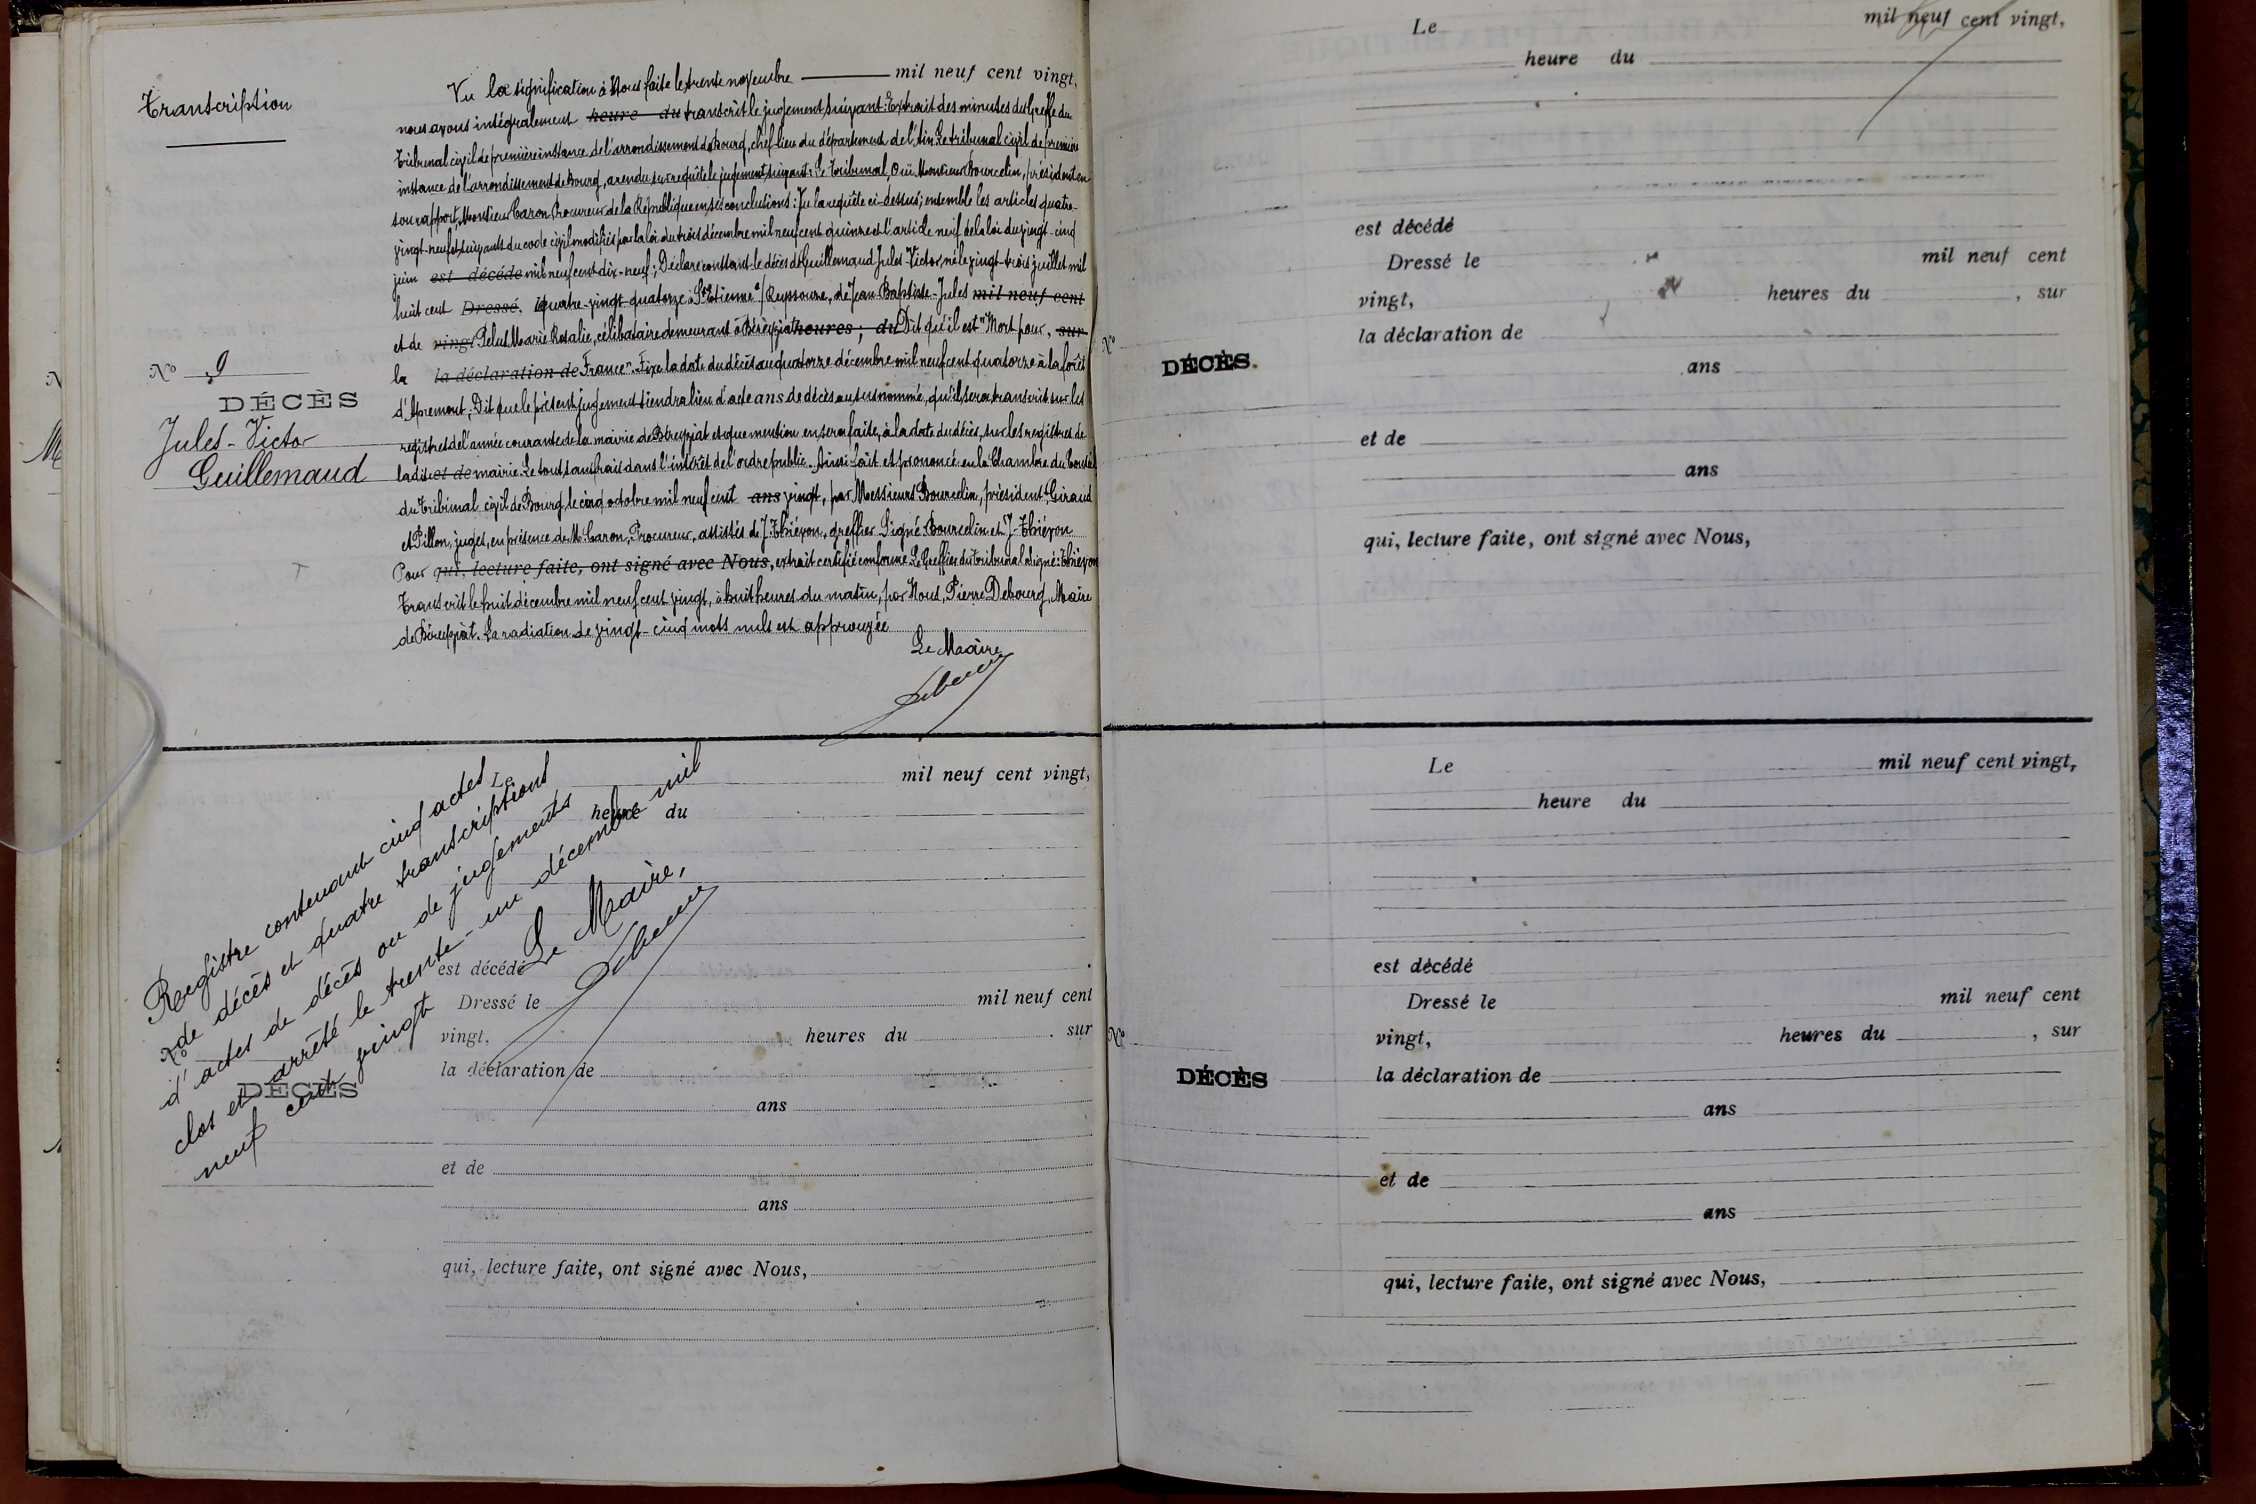 Transcription
Vu la signification à Nous faite le trente novembre mil neuf cent vingt,
nous avons intégralement heure du transcrit le jugement suivant: Extrait des minutes du Greffe du
Tribunal civil de première instance de l'arrondissement de Bourg, chef-lieu du département de l'Ain. Le tribunal civil de première
instance de l'arrondissement de Bourg, a rendu sur requête le jugement suivant: Le Tribunal, Ouï Monsieur Bourcelin, président en
son rapport, Monsieur Caron Procureur de la République en ses conclusions: Vu la requête ci-dessus; ensemble les articles quatre-
vingt-neuf et suivants du code civil modifiés par la loi du trois décembre mil neuf cent quinze et l'article neuf de la loi du vingt-cinq
juin est décédé mil neuf cent dix-neuf; Déclare constant le décès de Guillemaud Jules-Victor, né le vingt-trois juillet mil
huit cent Dressé quatre-vingt-quatorze à St Etienne s/Reyssouze, de Jean-Baptiste-Jules mil neuf cent
et de vingt Pelus Marie Rosalie, célibataire demeurant à Béréyziat heures; du Dit qu'il est "Mort pour, sur
la la déclaration de France". Fixe la date du décès au quatorze décembre mil neuf cent quatorze à la forêt
d'Apremont; Dit que le présent jugement tiendra lieu d'acte ans de décès au susnommé, qu'il sera transcrit sur les
registres de l'année courante de la mairie de Béreyziat et que mention en sera faite, à la date du décès, sur les registres de
ladite et de mairie. Le tout sans frais dans l'intérêt de l'ordre public. Ainsi fait et prononcé en la Chambre du Conseil
du Tribunal civil de Bourg, le cinq octobre mil neuf cent ans vingt, par Messieurs Bourcelin, président, Giraud
et Pillon, juges, en présence de M. Caron, Procureur, assistés de J. Thiévon, greffier Signé: Bourcelin et J. Thiévon
Pour qui, lecture faite, ont signé avec Nous, extrait certifié conforme Le Greffier du Tribunal signé: Thiévon
Transcrit le huit décembre mil neuf cent vingt, à huit heures du matin, par Nous, Pierre Debourg, Maire
de Béreyziat. La radiation de vingt-cinq mots nuls est approuvée
Le Maire
No 9
DÉCÈS
Jules-Victor
Guillemaud
Registre contenant cinq actes
de décès et quatre transcriptions
d'actes de décès ou de jugements
clos et arrêté le trente-un décembre mil
neuf cent vingt
Le Maire,
Le mil neuf cent vingt,
heure du
est décédé
Dressé le mil neuf cent
vingt, heures du , sur
No
DÉCÈS
la déclaration de
ans
et de
ans
qui, lecture faite, ont signé avec Nous,
Le mil neuf cent vingt,
heure du
est décédé
Dressé le mil neuf cent
vingt, heures du , sur
la déclaration de
No
DÉCÈS.
ans
et de
ans
qui, lecture faite, ont signé avec Nous,
Le mil neuf cent vingt,
heure du
est décédé
Dressé le mil neuf cent
vingt, heures du , sur
No
DÉCÈS
la déclaration de
ans
et de
ans
qui, lecture faite, ont signé avec Nous,